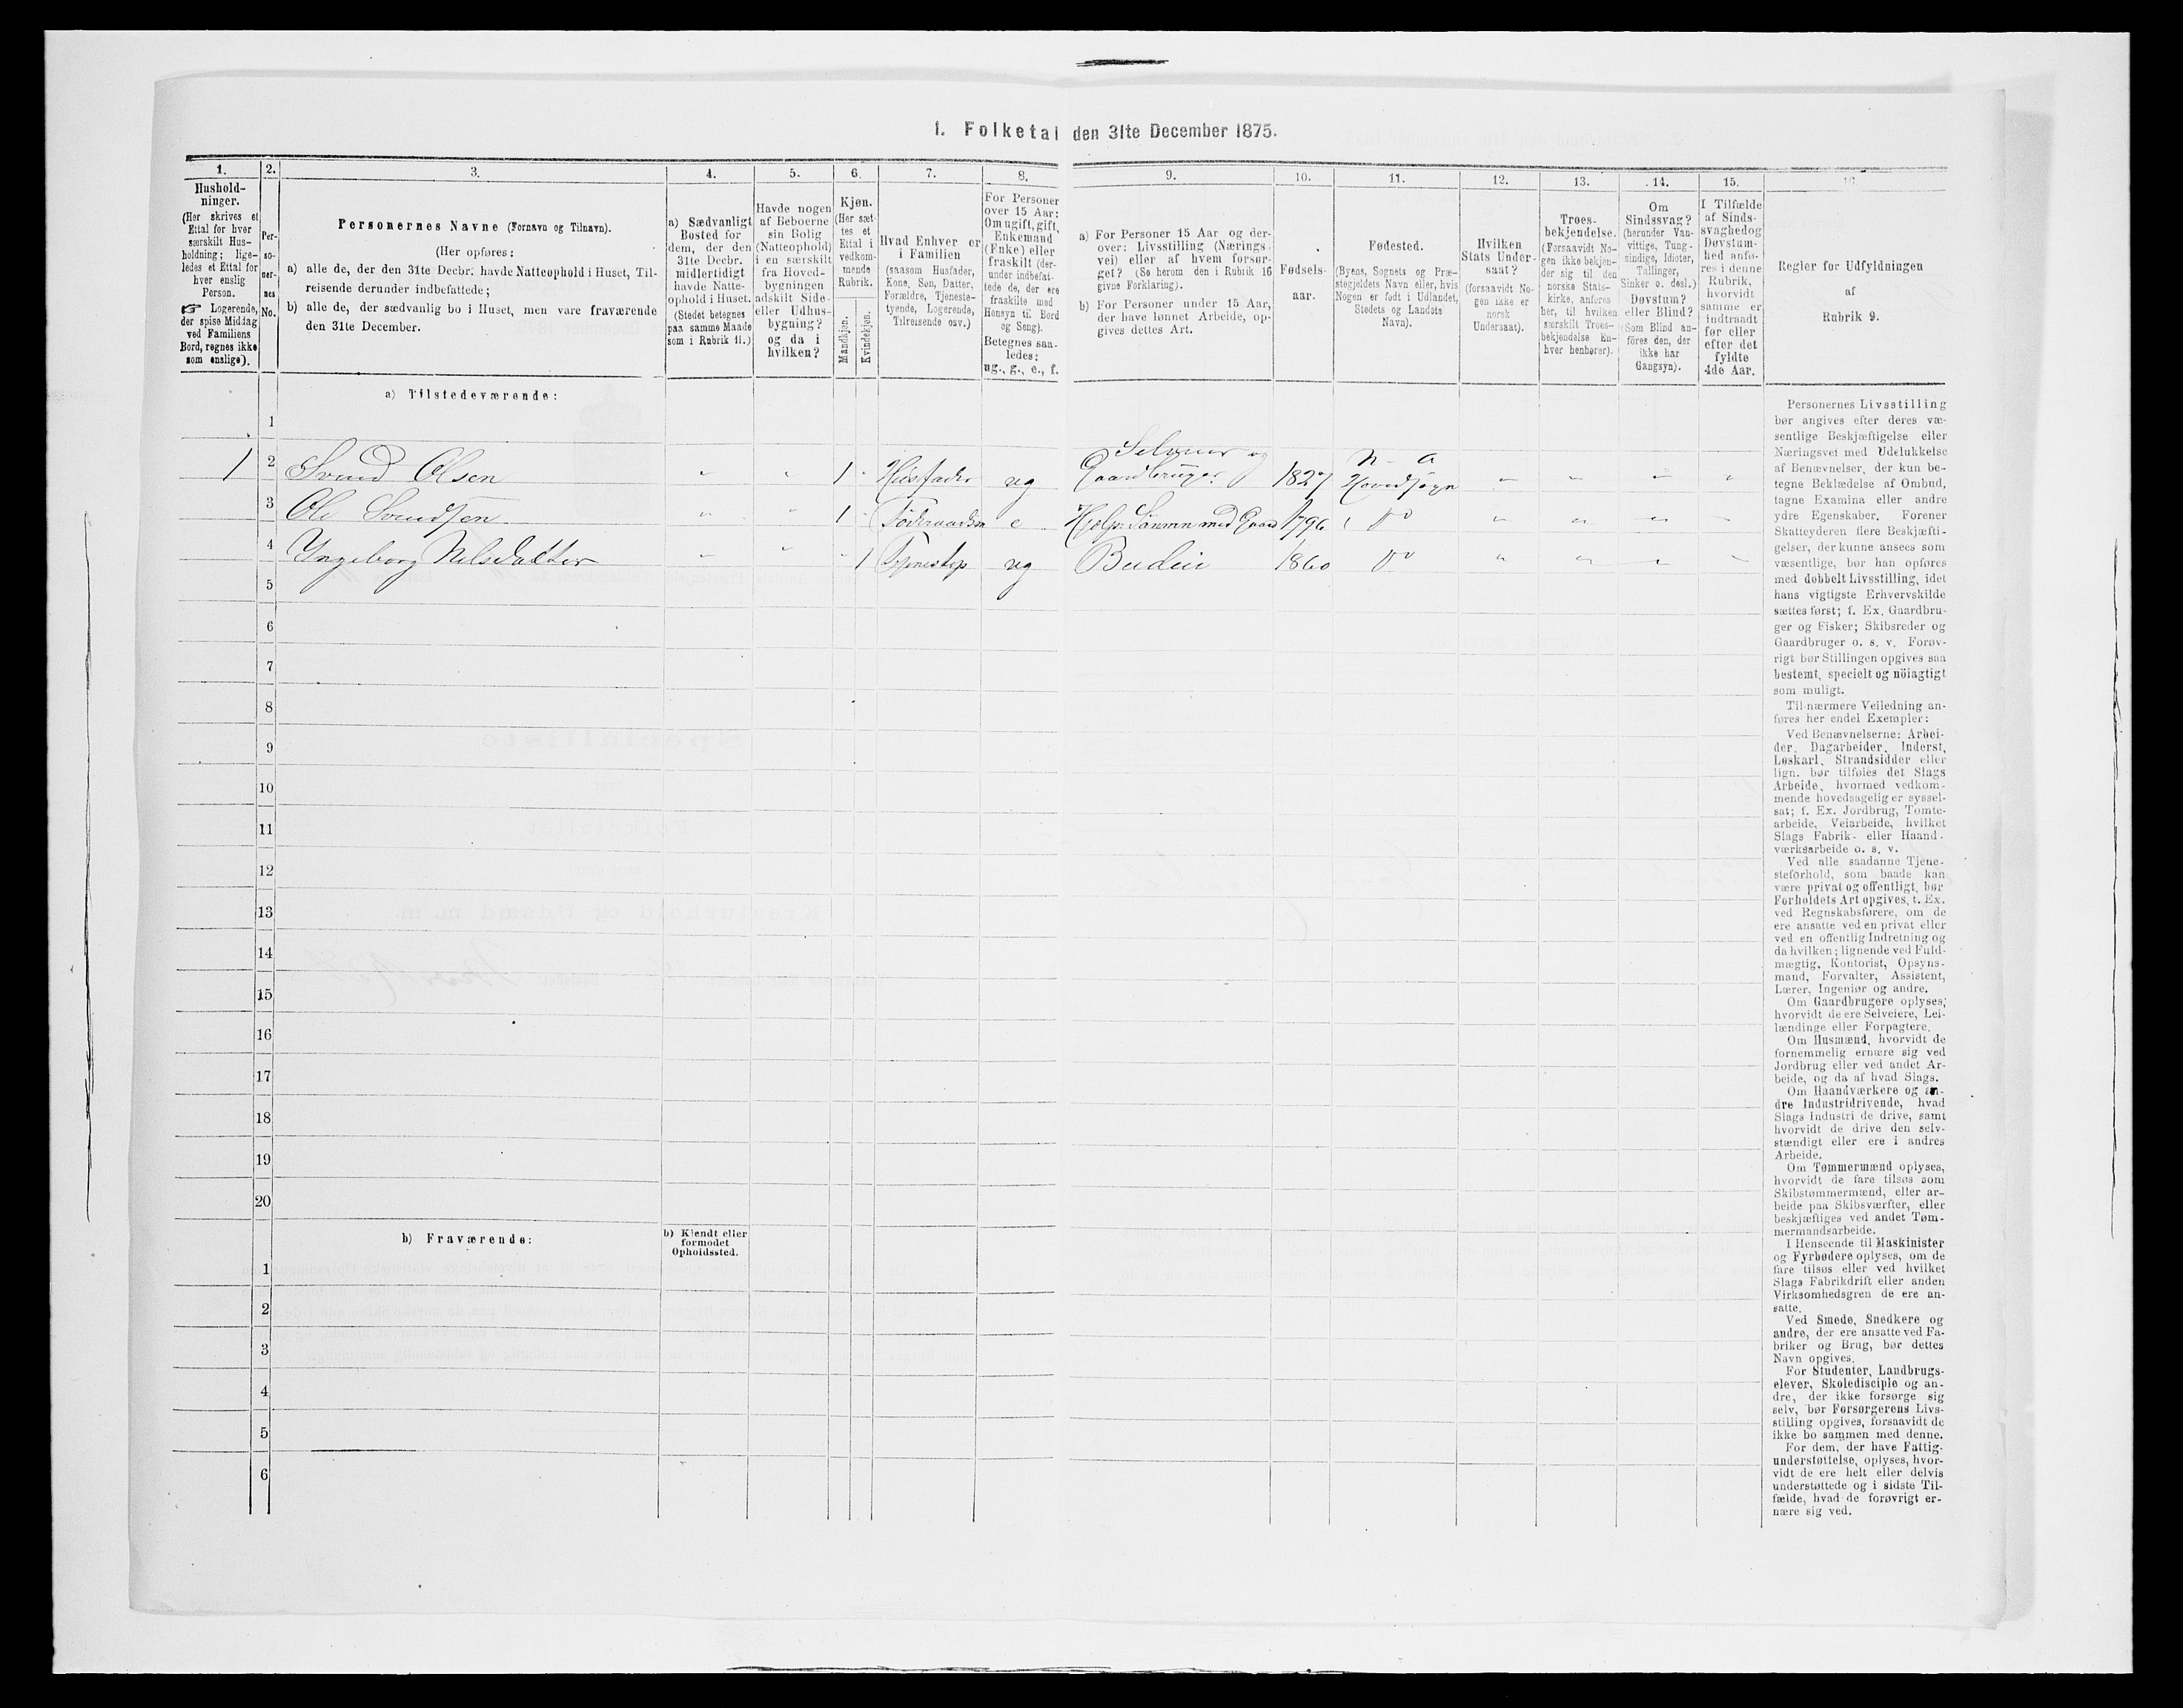 1. Folketal den 31te December 1875.
1.
Hushold-
ninger.
(Her skrives et
Ettal for hver
særskilt Hus-
holdning; lige-
ledes et Ettal for
hver enslig
Person.
☞ Logerende,
der spise Middag
ved Familiens
Bord, regnes ikke
som enslige).
2.
Per-
so-
ner-
nes
No.
3.
Personernes Navne (Fornavn og Tilnavn).
(Her opføres:
a) alle de, der den 31te Decbr. havde Natteophold i Huset, Til-
reisende derunder indbefattede;
b) alle de, der sædvanlig bo i Huset, men vare fraværende
den 31te December.
4.
a) Sædvanligt
Bosted for
dem, der den
31te Decbr.
midlertidigt
havde Natte-
ophold i Huset.
(Stedet betegnes
paa samme Maade
som i Rubrik 11.)
5.
Havde nogen
af Beboerne
sin Bolig
(Natteophold)
i en særskilt
fra Hoved-
bygningen
adskilt Side-
eller Udhus-
bygning?
og da i
hvilken?
6.
Kjøn.
(Her sæt-
tes et
Ettal i
vedkom-
mende
Rubrik.
Mandkjøn.
Kvindekjøn.
7.
Hvad Enhver er
i Familien
(saasom Husfader,
Kone, Søn, Datter,
Forældre, Tjeneste-
tyende, Logerende,
Tilreisende osv.)
8.
For Personer
over 15 Aar:
Om ugift, gift,
Enkemand
(Enke) eller
fraskilt (der-
under indbefat-
tede de, der ere
fraskilte med
Hensyn til Bord
og Seng).
Betegnes saa-
ledes:
ug., g., e., f.
9.
a) For Personer 15 Aar og der-
over: Livsstilling (Nærings-
vei) eller af hvem forsør-
get? (Se herom den i Rubrik 16
givne Forklaring).
b) For Personer under 15 Aar,
der have lønnet Arbeide, op-
gives dettes Art.
10.
Fødsels-
aar.
11.
Fødested.
(Byens, Sognets og Præ-
stegjeldets Navn eller, hvis
Nogen er født i Udlandet,
Stedets og Landets
Navn).
12.
Hvilken
Stats Under-
saat?
(forsaavidt No-
gen ikke er
norsk
Undersaat).
13.
Troes-
bekjendelse.
(Forsaavidt No-
gen ikke bekjen-
der sig til den
norske Stats-
kirke, anføres
her, til hvilken
særskilt Troes-
bekjendelse En-
hver henhører).
14.
Om
Sindssvag?
(herunder Van-
vittige, Tung-
sindige, Idioter,
Tullinger,
Sinker o. desl.)
Døvstum?
eller Blind?
(Som Blind an-
føres den, der
ikke har
Gangsyn).
15.
I Tilfælde
af Sinds-
svaghed og
Døvstum-
hed anfø-
res i denne
Rubrik,
hvorvidt
samme er
indtraadt
før eller
efter det
fyldte
4de Aar.
16.
Regler for Udfyldningen
af
Rubrik 9.
a) Tilstedeværende:
1
1 2 Svend Olsen " " 1 - Husfader ug Selveier og Gaardbruger 1827 N. A Hovedsogn " " " "
3 Ole Svendsen " " 1 - e 1796 Do " " " -
4 Ingeborg Nilsdatter " " - 1 ug Budeie 1860 Do " " " -
5
6
7
8
9
10
11
12
13
14
15
16
17
18
19
20
b) Fraværende:
b) Kjendt eller
formodet
Opholdssted.
1
2
3
4
5
6
Personernes Livsstilling
bør angives efter deres væ-
sentlige Beskjæftigelse eller
Næringsvei med Udelukkelse
af Benævnelser, der kun be-
tegne Beklædelse af Ombud,
tagne Examina eller andre
ydre Egenskaber. Forener
Skatteyderen flere Beskjæfti-
gelser, der kunne ansees som
væsentlige, bør han opføres
med dobbelt Livsstilling, idet
hans vigtigste Erhvervskilde
sættes først; f. Ex. Gaardbru-
ger og Fisker; Skibsreder og
Gaardbruger o. s. v. Forøv-
rigt bør Stillingen opgives saa
bestemt, specielt og nöiagtigt
som muligt.
Til nærmere Veiledning an-
føres her endel Exempler:
Ved Benævnelserne: Arbei-
der, Dagarbeider, Inderst,
Løskarl, Strandsidder eller
lign. bør tilføies det Slags
Arbeide, hvormed vedkom-
mende hovedsagelig er syssel-
sat; f. Ex. Jordbrug, Tomte-
arbeide, Veiarbeide, hvilket
Slags Fabrik- eller Haand-
værksarbeide o. s. v.
Ved alle saadanne Tjene-
steforhold, som baade kan
være privat og offentligt, bør
Forholdets Art opgives, t. Ex.
ved Regnskabsførere, om de
ere ansatte ved en privat eller
ved en offentlig Indretning og
da hvilken; lignende ved Fuld-
mægtig, Kontorist, Opsyns-
mand, Forvalter, Assistent,
Lærer, Ingeniør og andre.
Om Gaardbrugere oplyses,
hvorvidt de ere Selveiere, Lei-
lændinge eller Forpagtere.
Om Husmænd, hvorvidt de
fornemmelig ernære sig ved
Jordbrug eller ved andet Ar-
beide, og da af hvad Slags.
Om Haandværkere og an-
dre Industridrivende, hvad
Slags Industri de drive, samt
hvorvidt de drive den selv-
stændigt eller ere i andres
Arbeide.
Om Tømmermænd oplyses,
hvorvidt de fare tilsøs som
Skibstømmermænd, eller ar-
beide paa Skibsværfter, eller
beskjæftiges ved andet Tøm-
mermandsarbeide.
I Henseende til Maskinister
og Fyrbødere oplyses, om de
fare tilsøs eller ved hvilket
Slags Fabrikdrift eller anden
Virksomhedsgren de ere an-
satte.
Ved Smede, Snedkere og
andre, der ere ansatte ved Fa-
briker og Brug, bør dettes
Navn opgives.
For Studenter, Landbrugs-
elever, Skoledisciple og an-
dre, der ikke forsørge sig
selv, bør Forsørgerens Livs-
stilling opgives, forsaavidt de
ikke bo sammen med denne.
For dem, der have Fattig-
understøttelse, oplyses, hvor-
vidt de ere helt eller delvis
understøttede og i sidste Til-
fælde, hvad de forøvrigt er-
nære sig ved.